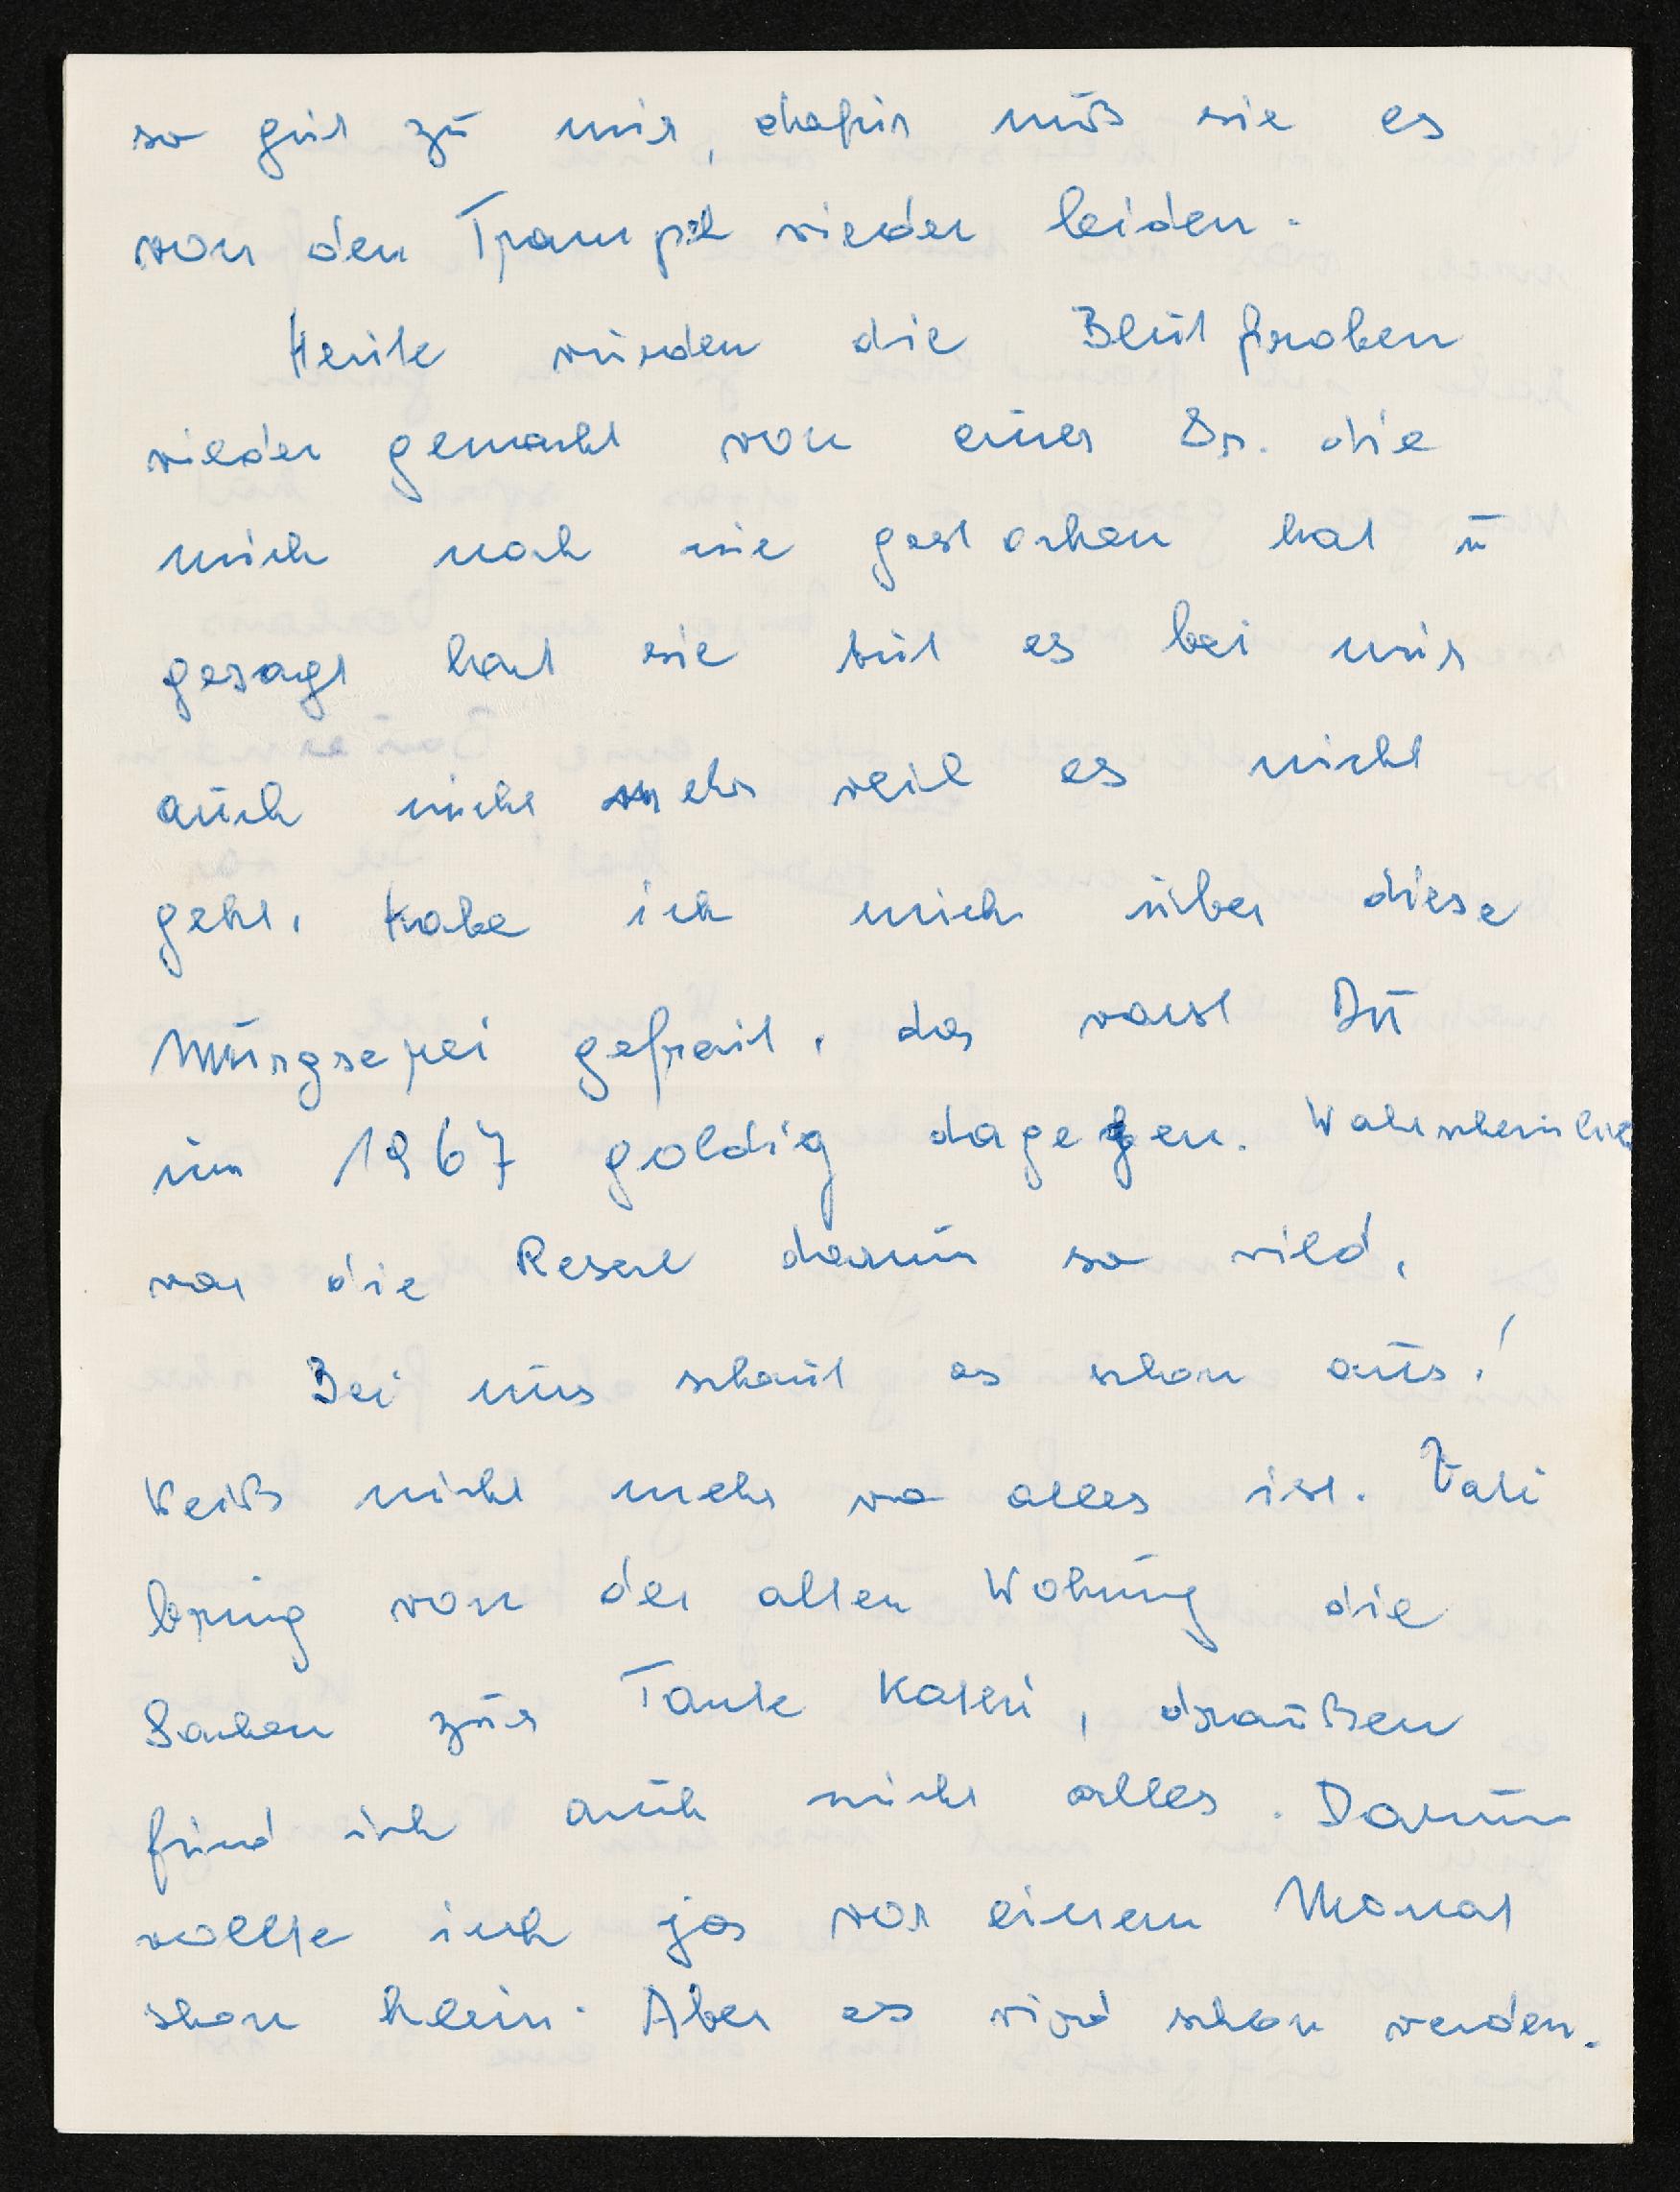 so gut zu mir, dafür muß sie es
von den Trampel wieder leiden.
Heute wurden die Blutproben
wieder gemacht von einer Sr. die
mich noch nie gestochen hat u
gesagt hat sie tut es bei mir
auch nicht mehr weil es nicht
geht. Habe ich mich über diese
Murgserei gefreut, da warst Du
im 1967 goldig dagegen. Wahrscheinlich
war die Reserl darum so wild.
Bei uns schaut es schon aus!
Weiß nicht mehr wo alles ist. Vati
bring von der alten Wohung die
Sachen zur Tante Kathi, draußen
find ich auch nicht alles. Darum
wollte ich ja vor einem Monat
schon heim. Aber es wird schon werden.